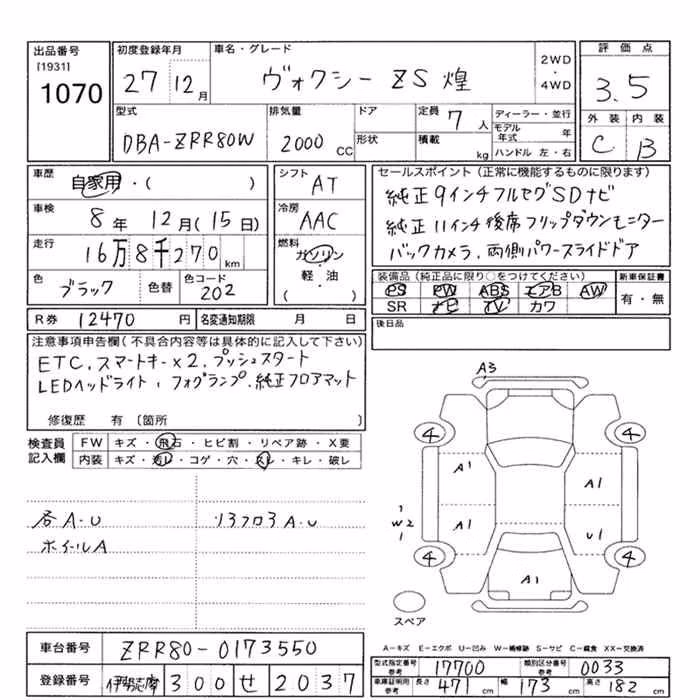 出品番号
[1931]
1070
初度登録年月
27 12月
車名・グレード
ヴォクシー ZS 煌
2WD
・
4WD
評価点
3.5
外装 内装
C B
型式
DBA-ZRR80W
排気量
2000 CC
ドア
形状
定員 7 人
積載 kg
ディーラー・並行
モデル年式 年
ハンドル 左・右
車歴
自家用・( )
車検
8年 12月(15日)
走行
16万8千270km
色
ブラック
色替
色コード
202
シフト
AT
冷房
AAC
燃料
ガソリン
・
軽・油
( )
セールスポイント(正常に機能するものに限ります)
純正9インチフルセグSDナビ
純正11インチ後席フリップダウンモニター
バックカメラ、両側パワースライドドア
装備品(純正品に限り○をつけてください)
PS PW ABS エアB AW
SR ナビ TV カワ
新車保証書
有・無
後日品
R券 12470円 名変通知期限 月 日
注意事項申告欄(不具合内容等は具体的に記入して下さい)
ETC、スマートキー×2、プッシュスタート
LEDヘッドライト、フォグランプ、純正フロアマット
修復歴 有 〔箇所 〕
検査員記入欄
FW キズ・飛石・ヒビ割・リペア跡・X要
内装 キズ・汚レ・コゲ・穴・スレ・キレ・破レ
各A・U
ホイールA
リヨフロヨA・U
A3
4 4
A1 A1
W2
A1 U1
4 4
A1
スペア
A−キズ E−エクボ U−凹み W−補修跡 S−サビ C−腐食 XX−交換済
車台番号 ZRR80-0173550
登録番号 伊勢志摩 300 せ 2037
型式指定番号参考 17700 類別区分番号参考 0033
車庫証明用参考 長さ 471cm 幅 173cm 高さ 182cm